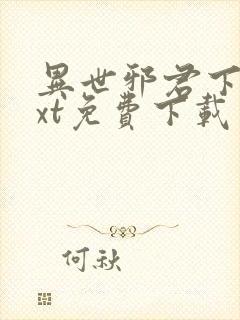 異世邪君下
xt免費下載
何秋